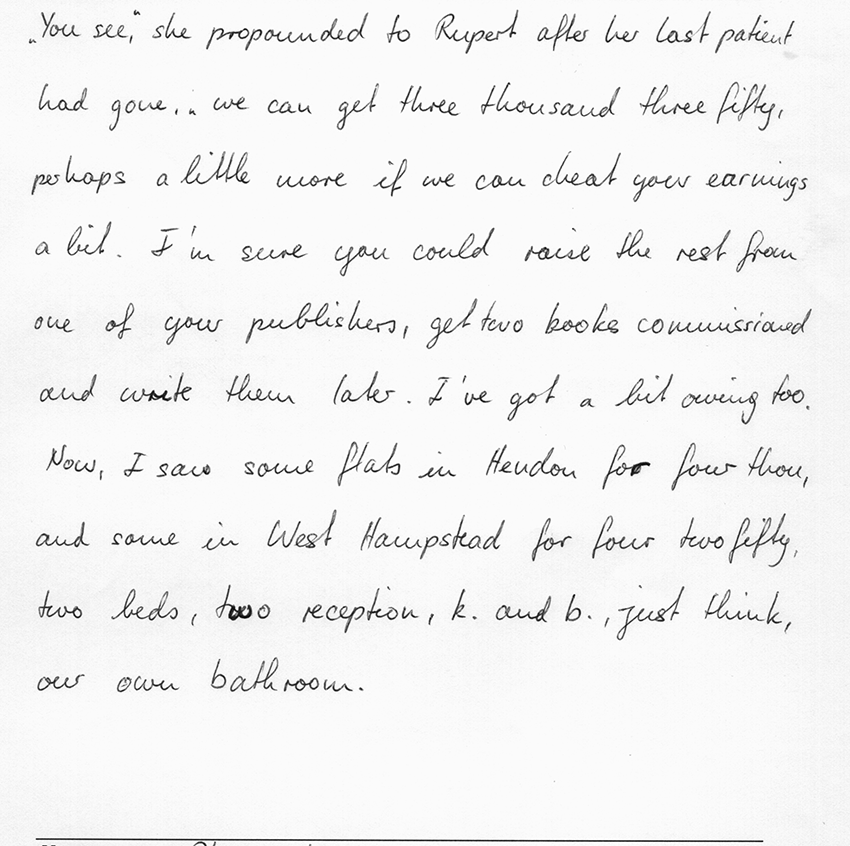 „You see,“ she propounded to Rupert after her last patient
had gone, „we can get three thousand three fifty,
perhaps a little more if we can cheat your earnings
a bit. I'm sure you could raise the rest from
one of your publishers, get two books commissioned
and write them later. I've got a bit owing too.
Now, I saw some flats in Hendon for four thou,
and some in West Hampstead for four two fifty,
two beds, two reception, k. and b., just think,
our own bathroom.